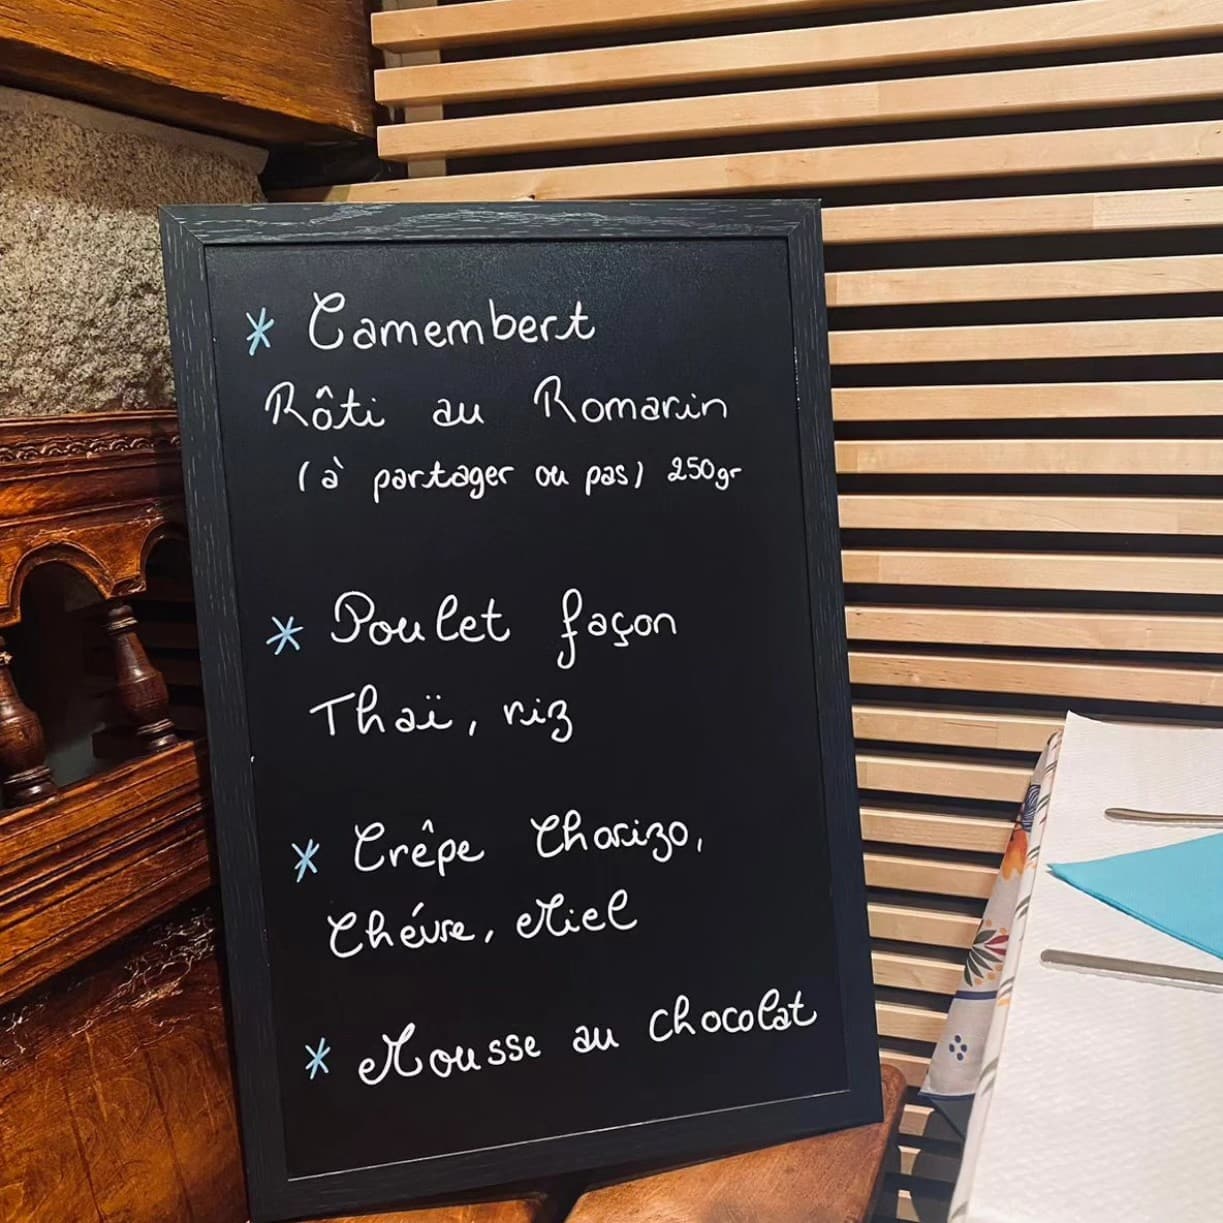 * Camembert
Rôti au Romarin
(à partager ou pas) 250gr
* Poulet façon
Thaï, riz
* Crêpe Chorizo,
Chévre, Miel
* Mousse au chocolat